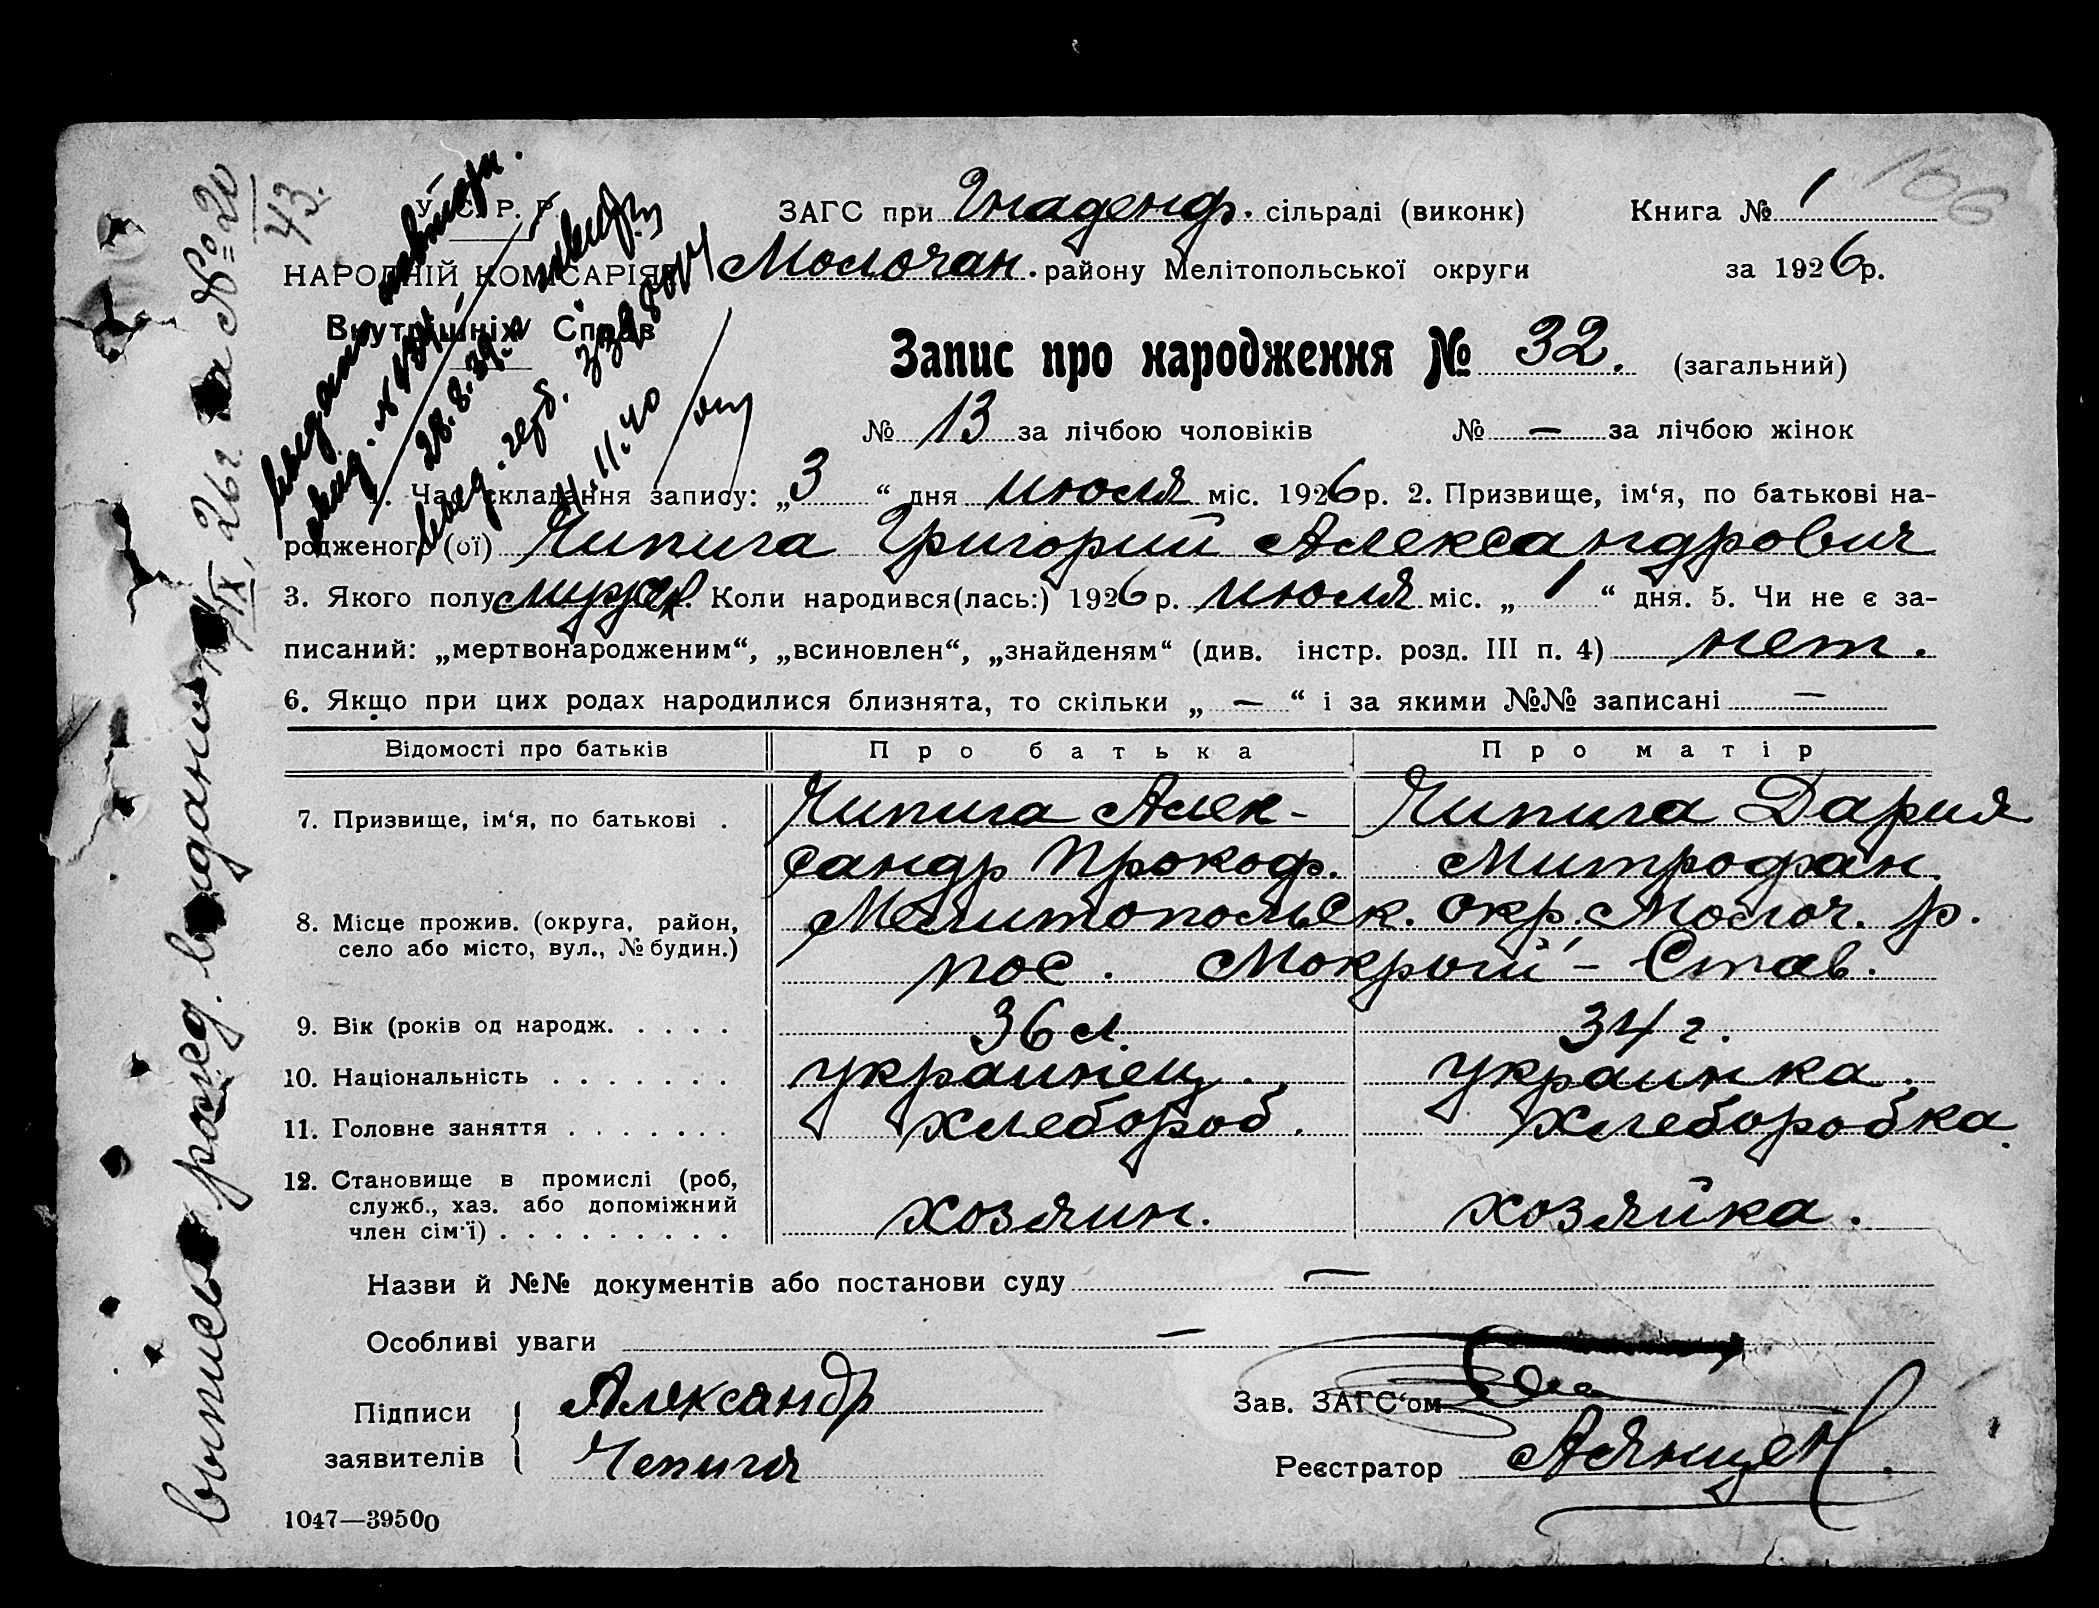 106
У. С. Р. Р.
НАРОДНІЙ КОМІСАРІЯТ
Внутрішніх Справ
ЗАГС при Гнаденф. сільраді (виконк) Книга № 1
Молочан. району Мелітопольської округи за 1926 р.
Запис про народження № 32. (загальний)
№ 13 за лічбою чоловіків № — за лічбою жінок
28.8.39.
11.11.40
1. Час складання запису: „3“ дня июля міс. 1926 р. 2. Призвище, ім‘я, по батькові на-
родженого (ої) Чипига Григорий Александрович
3. Якого полу мужск. Коли народився(лась:) 1926 р. июля міс. „1“ дня. 5. Чи не є за-
писаний: „мертвонародженим“, „всиновлен“, „знайденям“ (див. інстр. розд. III п. 4) нет.
6. Якщо при цих родах народилися близнята, то скільки „—“ і за якими №№ записані —
Відомості про батьків Про батька Про матір
7. Призвище, ім‘я, по батькові . Чипига Алек- Чипига Дария
сандр Прокоф. Митрофан.
8. Місце прожив. (округа, район, Мелитопольск. окр. Молоч. р.
село або місто, вул., № будин.) пос. Мокрый-Став.
9. Вік (років од народж. . . . . 36 л. 34 г.
10. Національність . . . . . . . украинец. украинка.
11. Головне заняття . . . . . . . хлебороб. хлеборобка.
12. Становище в промислі (роб,
служб., хаз. або допоміжний хозяин. хозяйка.
член сім‘ї) . . . . . . . . .
Назви й №№ документів або постанови суду —
Особливі уваги —
Підписи Александр Зав. ЗАГС‘ом
заявителів Чепига Реєстратор
1047—39500
выпись о рожд. выдана 1/IX, 26 г. за № 20
43.